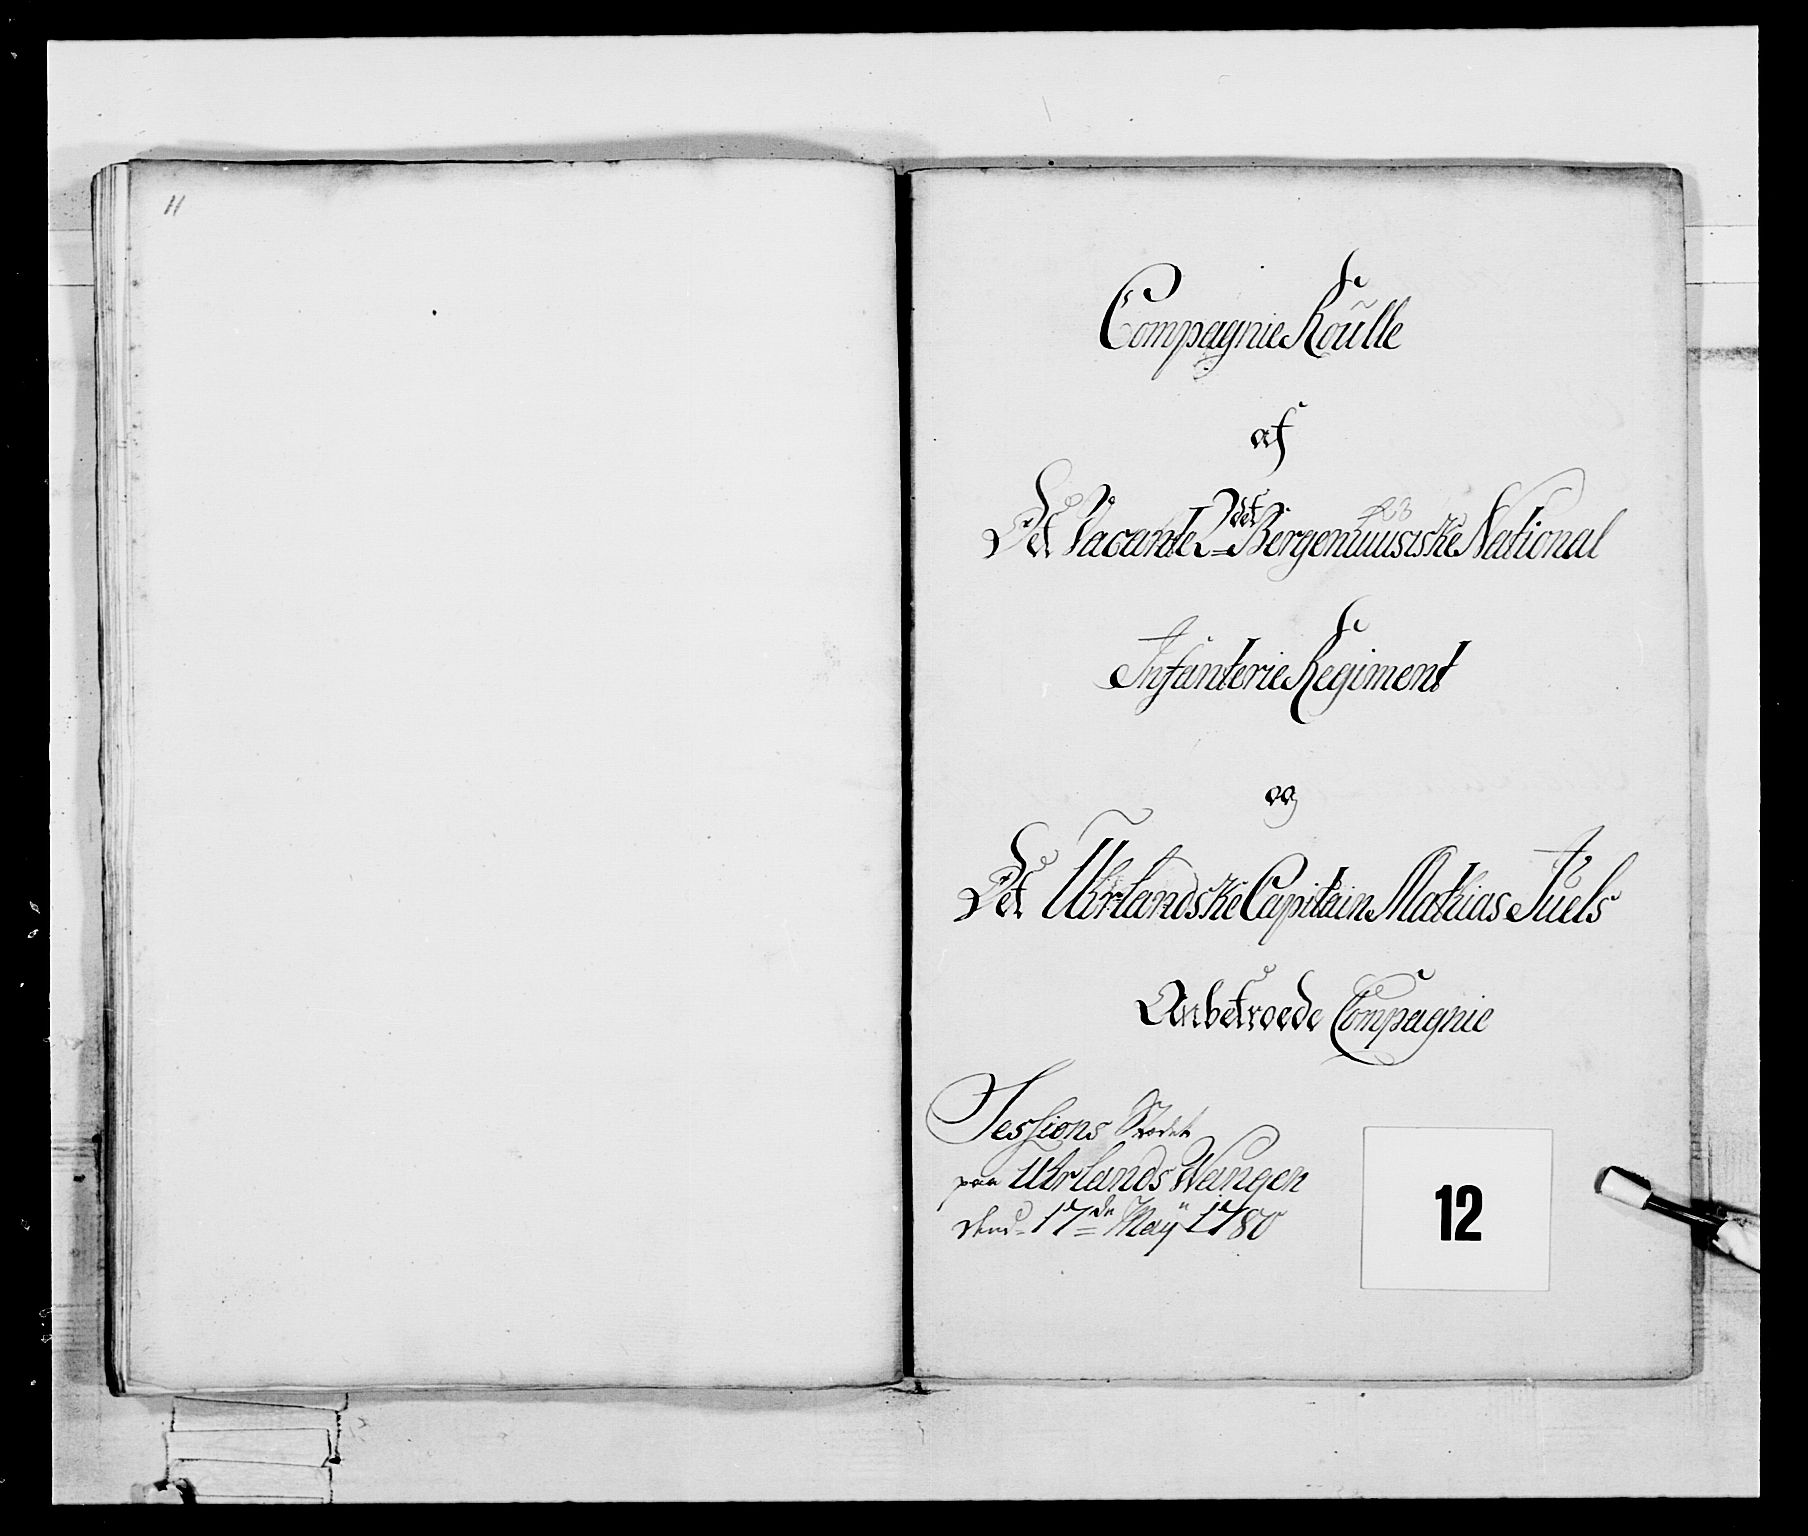 11
Compagnie Roulle
af
Det Vacante 2det Bergenhuusiske National
Infanterie Regiment
og
Det Uhrlandske Capitain Mathias Juels
Anbetroede Compagnie
Sessions Stædet
paa Uhrlands Wangen
dend 17de May 1780
12